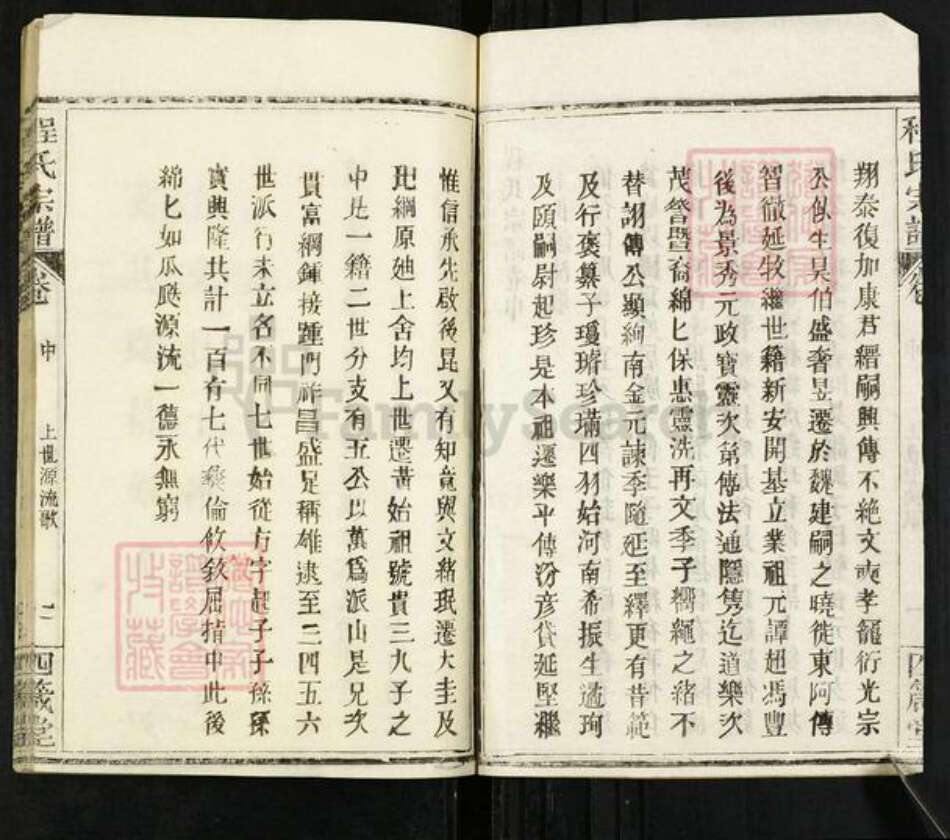 翔泰復加康君縉嗣興傳不絶文奭孝籠衍光宗
公似生昊伯盛奢昱遷於魏建嗣之曉徙東阿傳
智徹延牧繼世籍新安開基立業祖元譚超馮豐
後為景秀元政寶靈次第傳法通隱雋迄道樂次
茂訾暨裔綿匕保惠靈洗再文季子嚮繩之緒不
替詡傳公顯絢南金元諫季隨延至繹更有昔範
及行褒纂子瓊璿珍璊四羽始河南希振生遹珣
及頤嗣尉起珍是本祖遷樂平傳汾彦貸延堅繼
惟信承先啟後昆又有知竟與文緒珉遷大圭及
玘綱原廸上舍均上世遷黃始祖號貴三九子之
中是一籍二世分支有五公以萬爲派山是兄次
貫富綱鍾接踵門祚昌盛足稱雄逮至三四五六
世派行未立名不同七世始從方字起子子孫孫
寔興隆共計一百有七代彜倫攸敘屈指中此後
綿匕如瓜瓞源流一德永無窮
程氏宗譜
卷
中
上世源流歌
二
四箴堂
FamilySearch